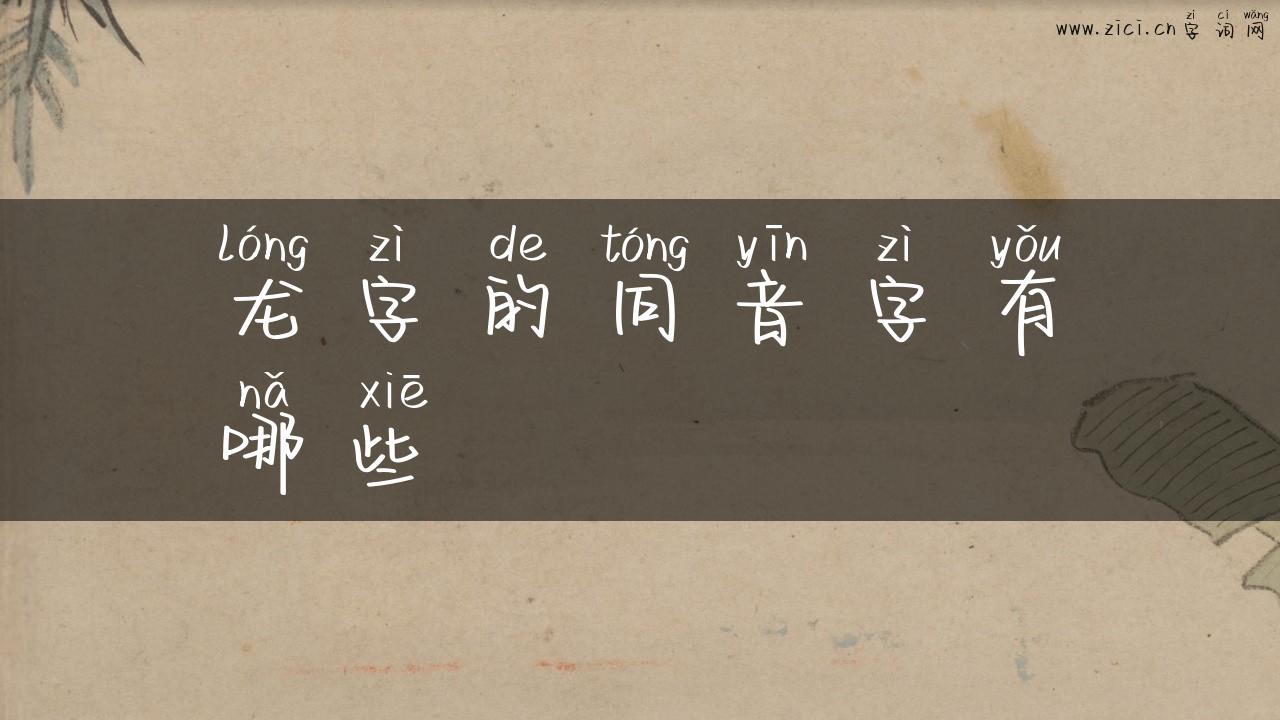 zì cí wǎng
www.zici.cn 字词网
lóng zì de tóng yīn zì yǒu
龙字的同音字有
nǎ xiē
哪些